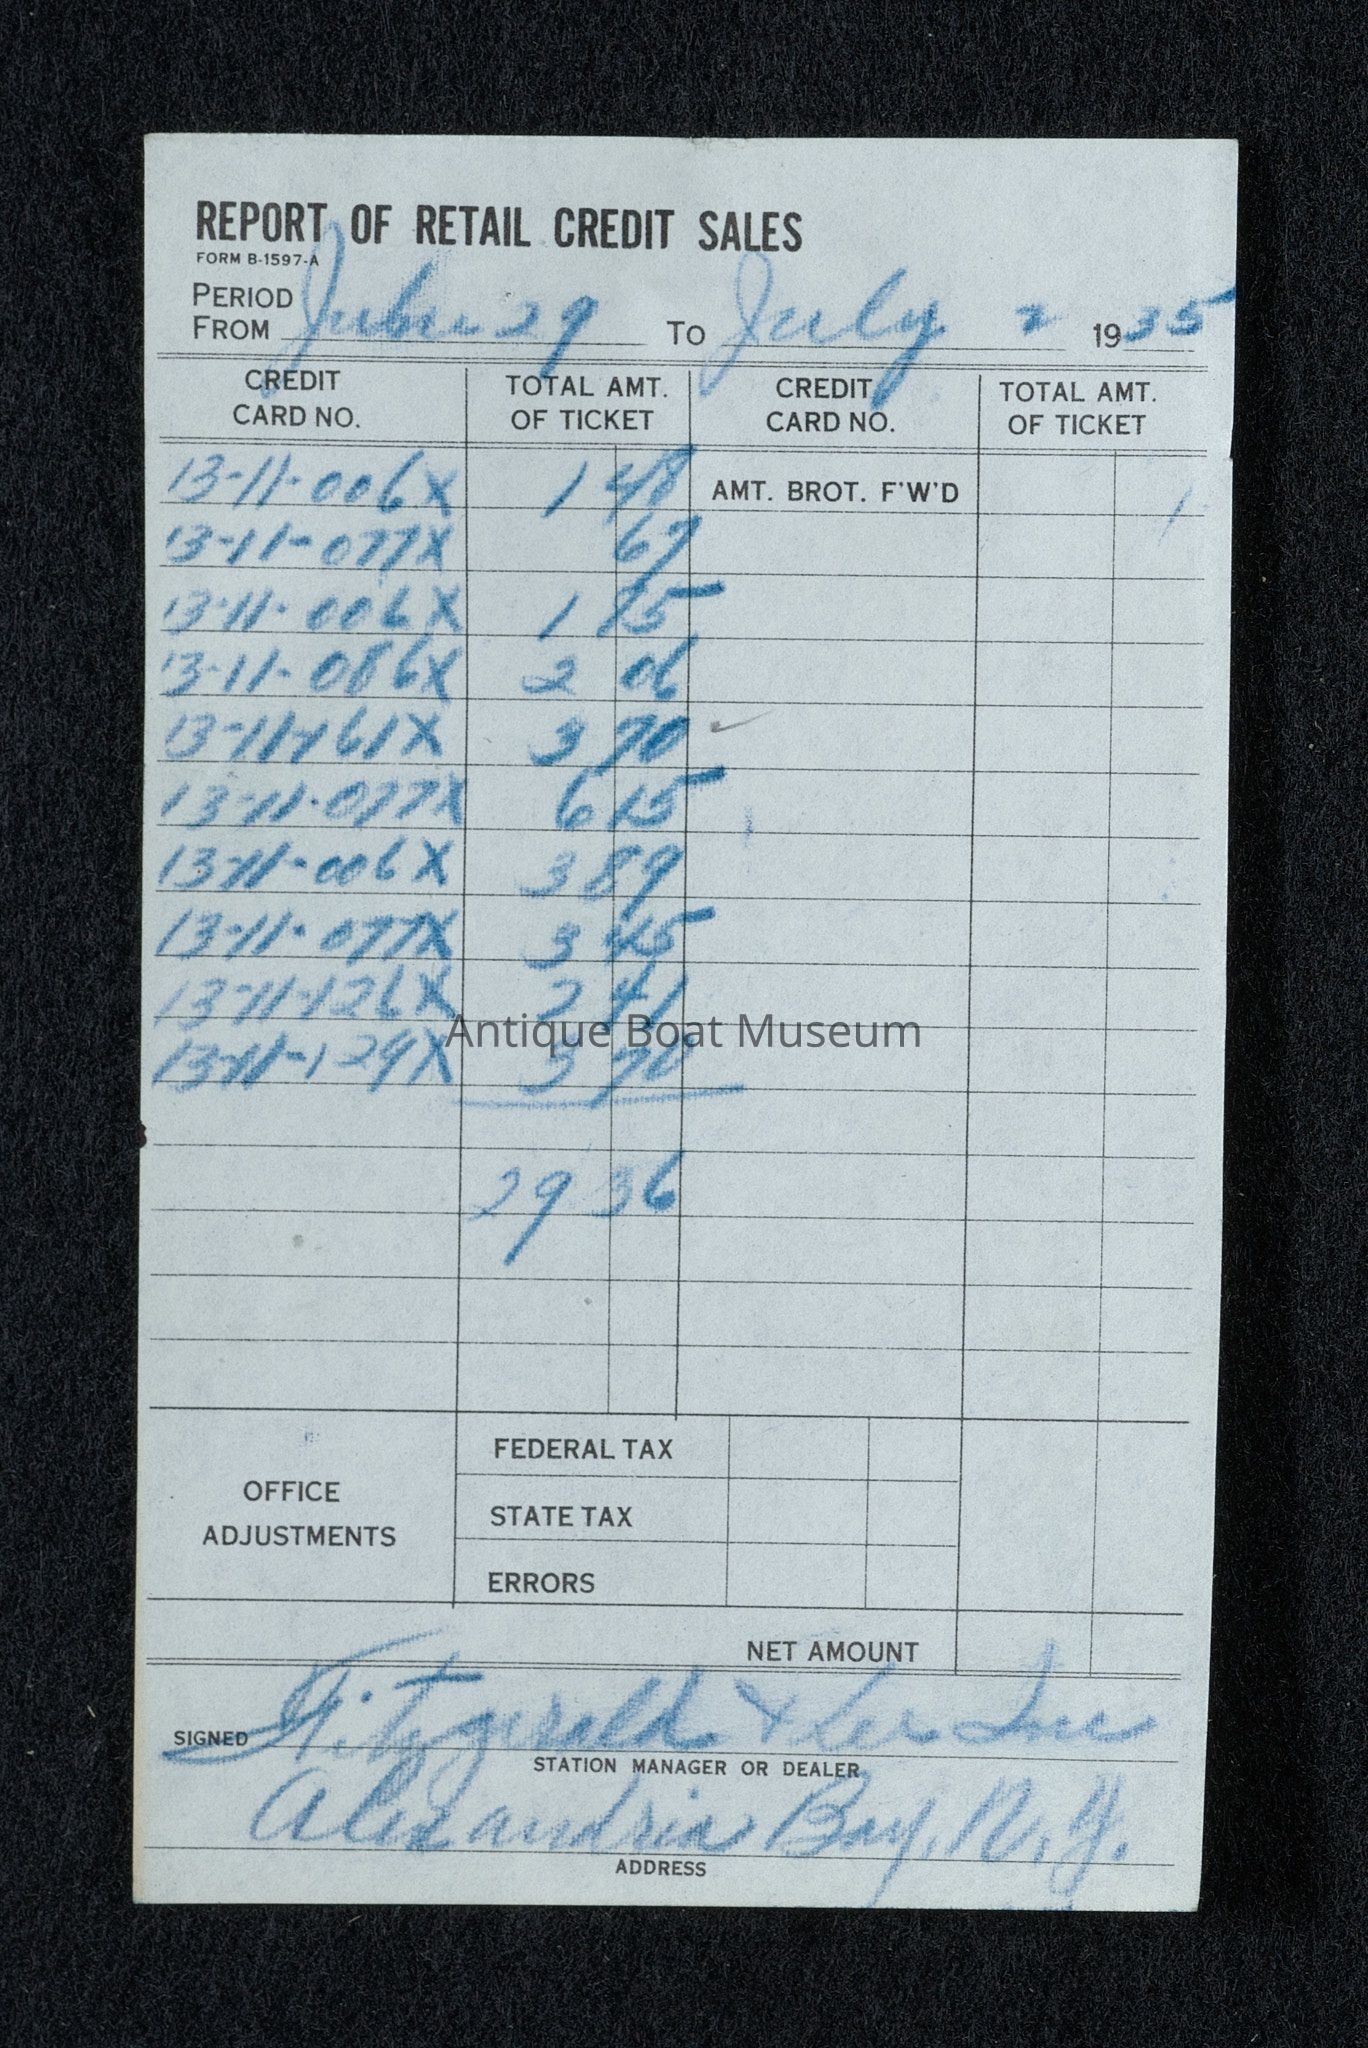 REPORT OF RETAIL CREDIT SALES
FORM B-1597-A
PERIOD
FROM June 29 TO July 2 1935
CREDIT CARD NO. TOTAL AMT. OF TICKET CREDIT CARD NO. TOTAL AMT. OF TICKET
13-11-006X 1 48 AMT. BROT. F'W'D
13-11-077X 67
13-11-006X 1 85
13-11-086X 2 06
13-11-161X 3 70
13-11-077X 6 15
13-11-006X 3 89
13-11-077X 3 45
13-11-126X 2 41
Antique Boat Museum
13-11-129X 3 70
29 36
OFFICE ADJUSTMENTS
FEDERAL TAX
STATE TAX
ERRORS
NET AMOUNT
SIGNED Fitzgerald & Lee Inc
STATION MANAGER OR DEALER
Alexandria Bay, N.Y.
ADDRESS